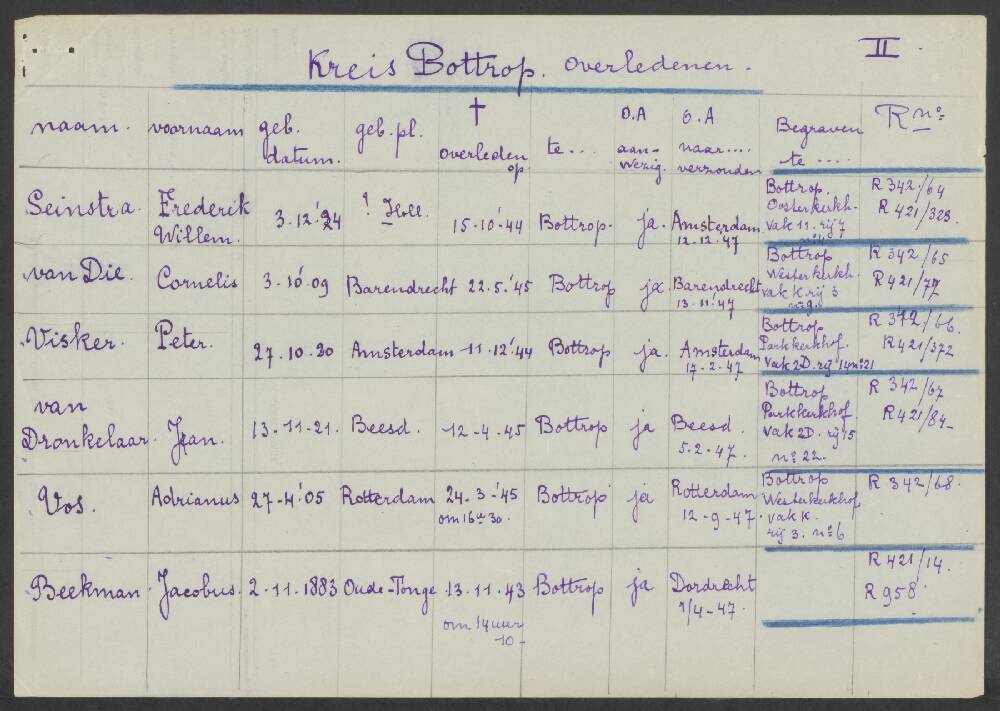 Kreis Bottrop. overledenen. II
naam. voornaam geb. datum. geb. pl. † overleden op. te... O.A aanwezig. O.A naar.... verzonden Begraven te .... R nº.
Seinstra. Frederik Willem. 3.12.'24 ? Holl. 15.10.'44 Bottrop. ja. Amsterdam 12.12.'47 Bottrop. Oosterkerkh. vak 11. rij 7 R 342/64 R 421/328.
van Die. Cornelis 3.10.'09 Barendrecht 22.5.'45 Bottrop ja. Barendrecht 13.11.'47 Bottrop Westerkerkh. vak K rij 3 nº 9. R 342/65 R 421/77
Visker. Peter. 27.10.20 Amsterdam 11.12.'44 Bottrop ja. Amsterdam 17.2.'47 Bottrop Parkkerkhof. vak 2D. rij 14 nº 21 R 342/66. R 421/372
van Dronkelaar. Jan. 13.11.21. Beesd. 12-4.45 Bottrop ja Beesd. 5.2.47. Bottrop Parkkerkhof. vak 2D. rij 15 nº 22. R 342/67 R 421/84
Vos. Adrianus 27-4.'05 Rotterdam 24.3-'45 om 16u 30. Bottrop ja Rotterdam 12-9-47. Bottrop Westerkerkhof vak K. rij 3. nº 6 R 342/68.
Beekman. Jacobus. 2.11.1883 Oude-Tonge 13.11.43 om 14 uur 10- Bottrop ja Dordrecht 1/4-47. R 421/14. R 958